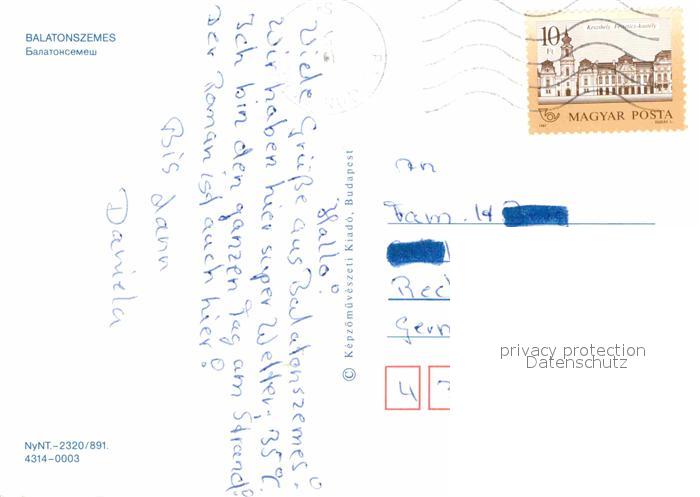 BALATONSZEMES
Балатонсемеш
Hallo!
Viele Grüße aus Balatonszemes!
Wir haben hier super Wetter, 35°C.
Ich bin den ganzen Tag am Strand!
Der Roman ist auch hier!
Bis dann
Daniela
© Képzőművészeti Kiadó, Budapest
NyNT.-2320/891.
4314-0003
10 Ft
Keszthely, Festetics-kastély
MAGYAR POSTA
An
Fam. H
Germ
4
privacy protection
Datenschutz